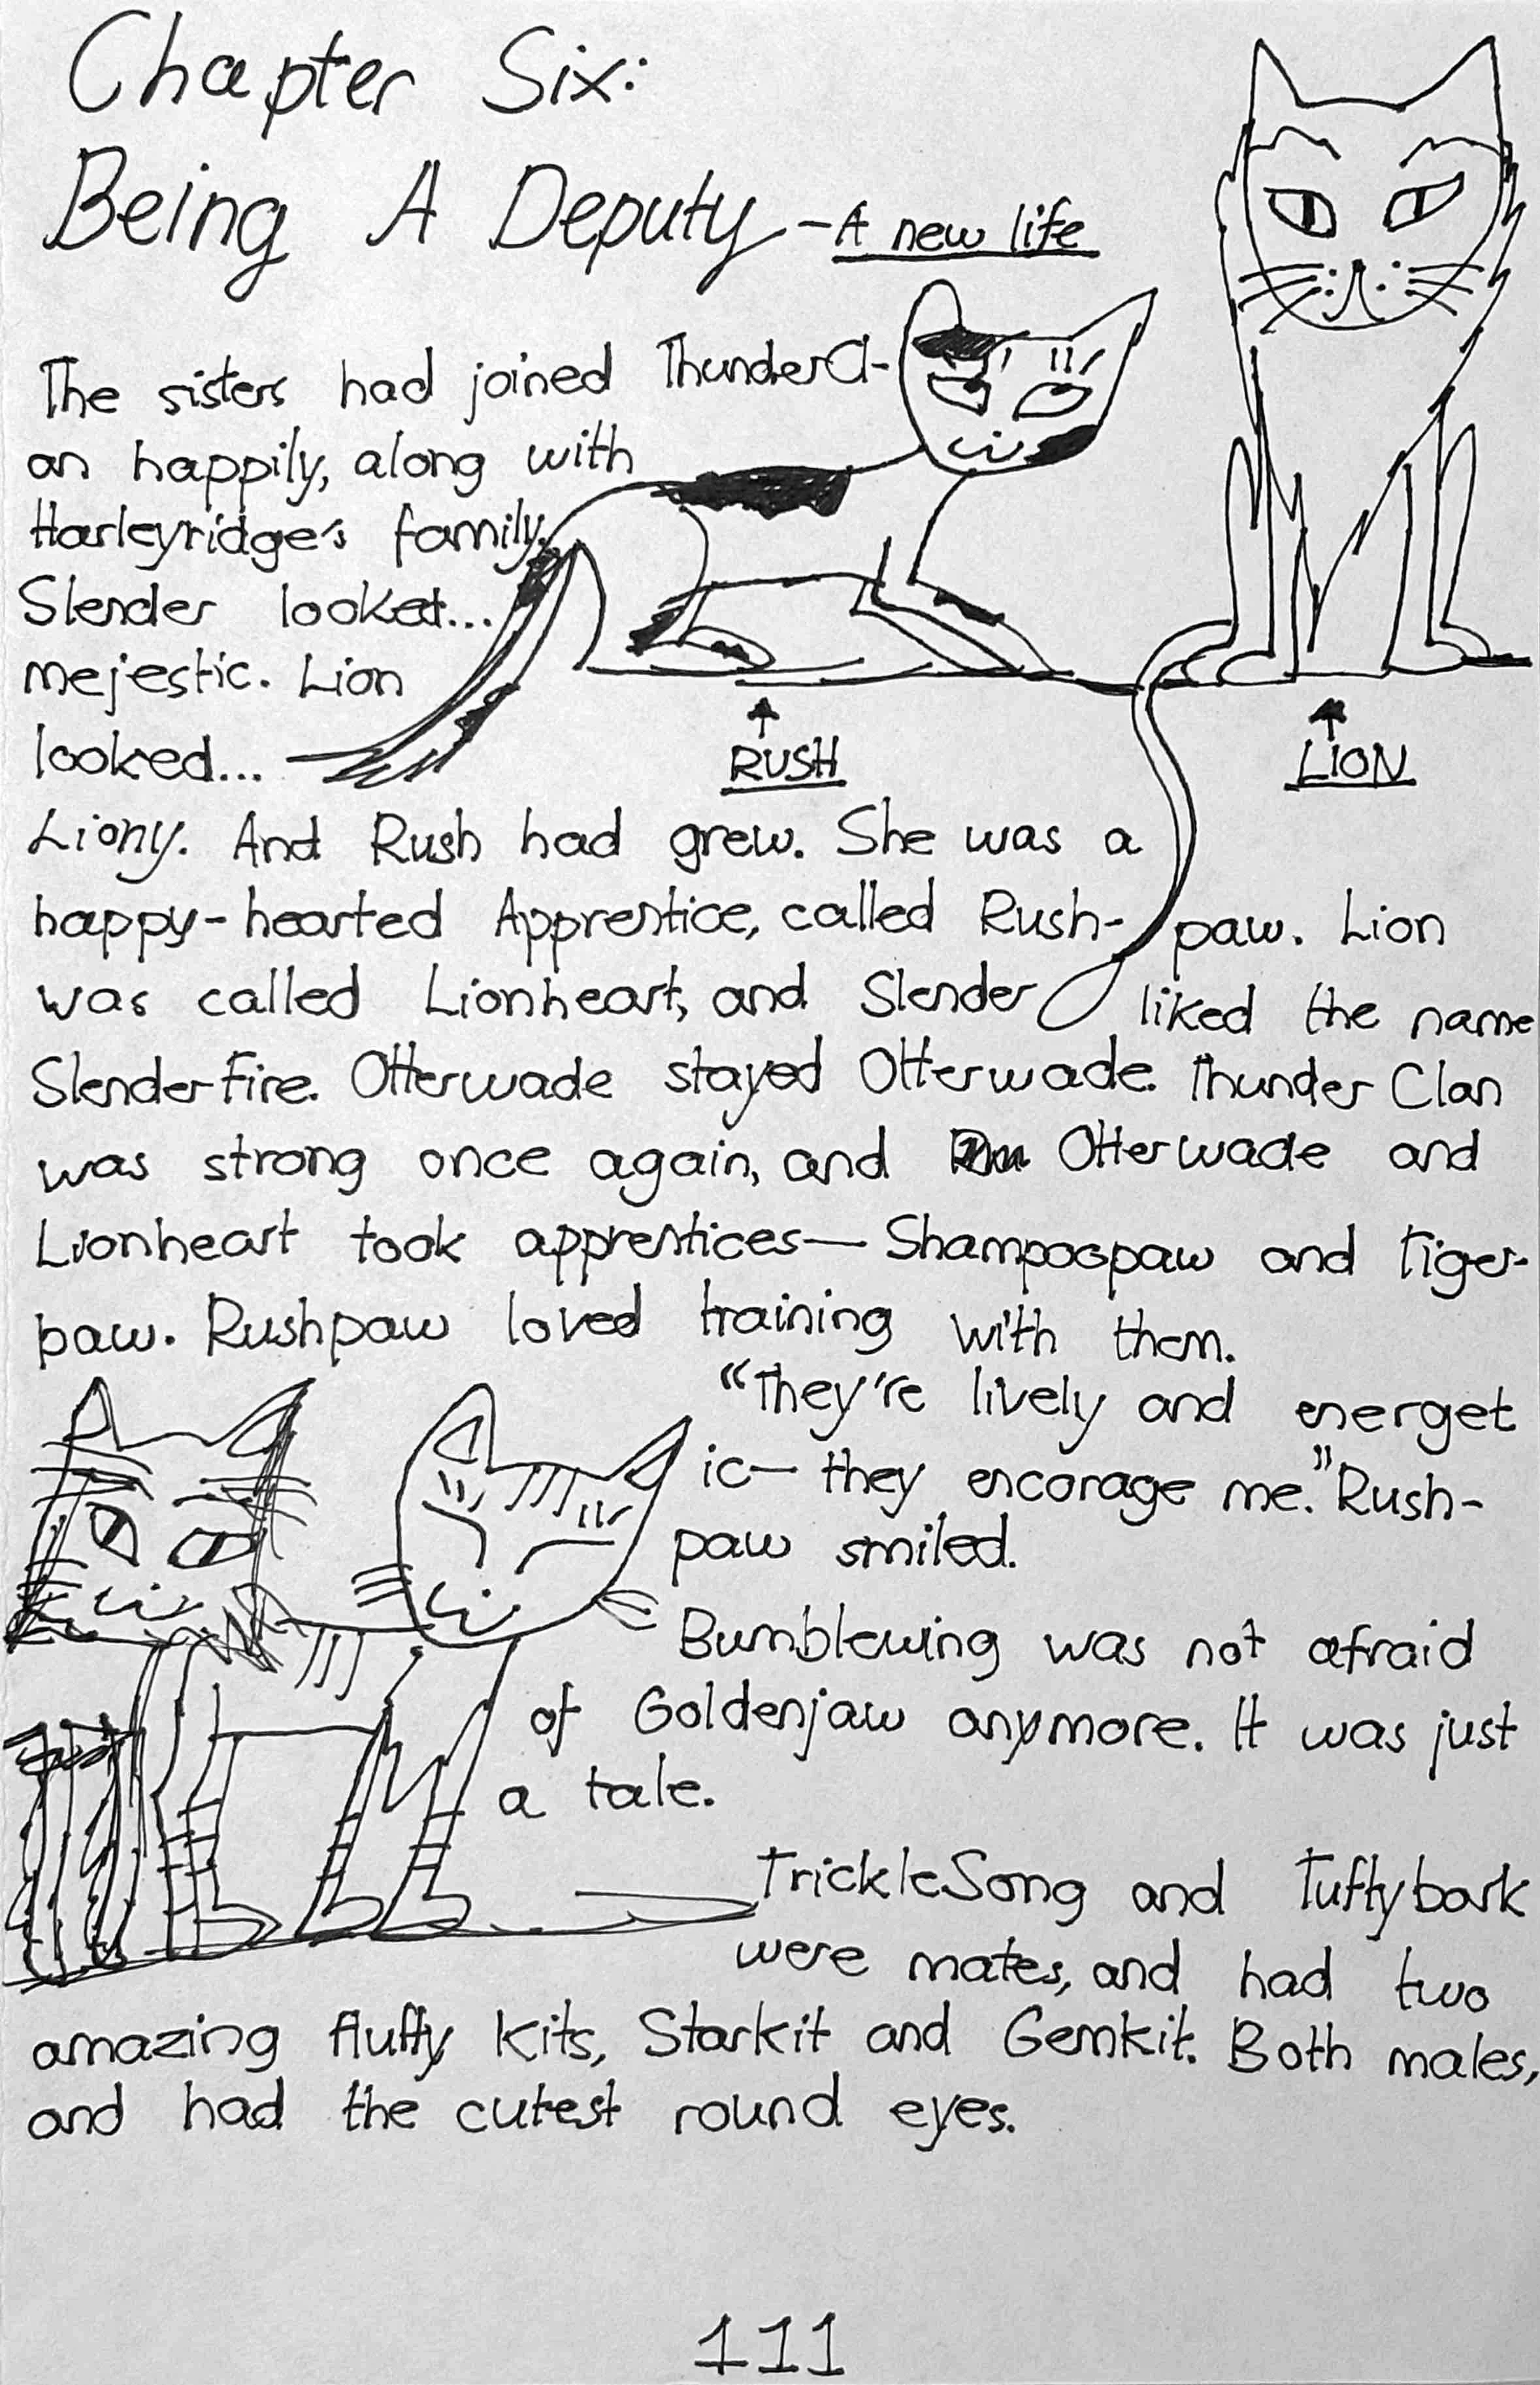 Chapter Six:
Being A Deputy - A new life
The sisters had joined ThunderCl-
an happily, along with
Harleyridge's family.
Slender looked...
mejestic. Lion
looked...
RUSH
LION
Liony. And Rush had grew. She was a
happy-hearted Apprentice, called Rush-paw. Lion
was called Lionheart, and Slender liked the name
Slenderfire. Otterwade stayed Otterwade. Thunder Clan
was strong once again, and Otterwade and
Lionheart took apprentices— Shampoopaw and Tiger-
paw. Rushpaw loved training with them.
"They're lively and energet
ic— they encorage me." Rush-
paw smiled.
Bumblewing was not afraid
of Goldenjaw anymore. It was just
a tale.
TrickleSong and Tuftybark
were mates, and had two
amazing fluffy kits, Starkit and Gemkit. Both males,
and had the cutest round eyes.
111